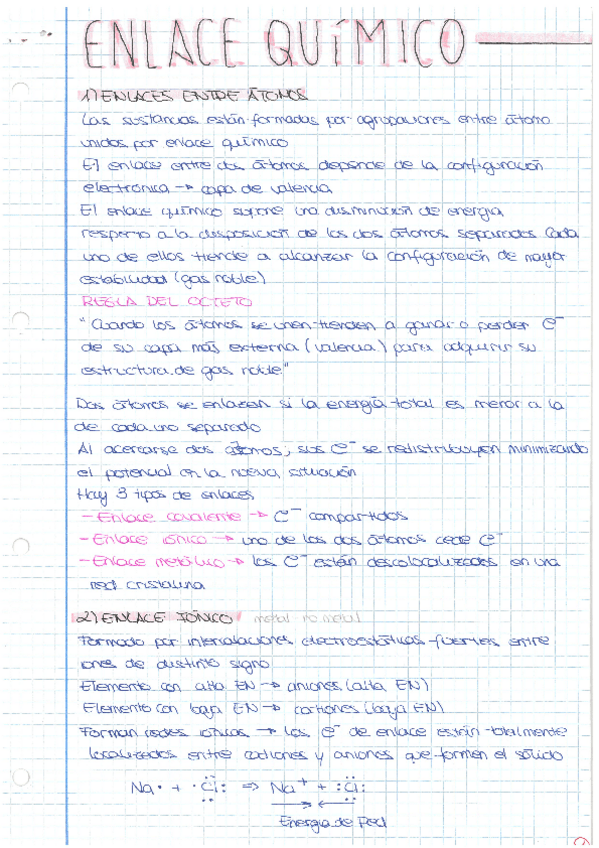 ENLACE QUÍMICO
1) ENLACES ENTRE ÁTOMOS
Las sustancias están formadas por agrupaciones entre átomo
unidos por enlace químico
El enlace entre dos átomos depende de la configuración
electrónica → capa de valencia
El enlace químico supone una disminución de energía
respecto a la disposición de los dos átomos separados Cada
uno de ellos tiende a alcanzar la configuración de mayor
estabilidad (gas noble)
REGLA DEL OCTETO
"Cuando los átomos se unen tienden a ganar o perder e⁻
de su capa más externa (valencia) para adquirir su
estructura de gas noble"
Dos átomos se enlazan si la energía total es menor a la
de cada uno separado
Al acercarse dos átomos, sus e⁻ se redistribuyen minimizando
el potencial en la nueva situación
Hay 3 tipos de enlaces
- Enlace covalente → e⁻ compartidos
- Enlace iónico → uno de los dos átomos cede e⁻
- Enlace metálico → los e⁻ están descolocalizados en una
red cristalina
2) ENLACE IÓNICO metal no metal
Formado por interalaciones electrostáticas fuertes entre
iones de distinto signo
Elemento con alta EN → aniones (alta EN)
Elemento con baja EN → cationes (baja EN)
Forman redes iónicas → los e⁻ de enlace están totalmente
localizados entre cationes y aniones que formen el sólido
Na· + ·Cl: ⇒ Na⁺ + :Cl:
Energía de Red